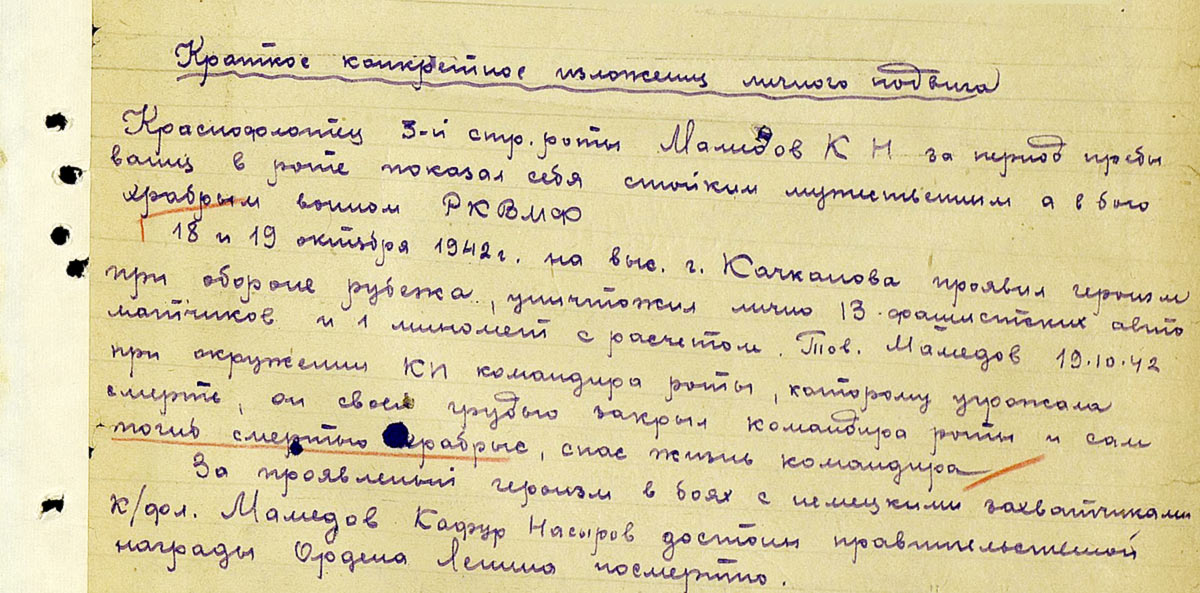 Краткое конкретное изложениц личного подвига
Краснофлотец 3-й стр. роты Мамедов К Н за период пребы
ваниц в роте показал себя стойким мужественним а в бою
храбрым воином РКВМФ
18 и 19 октября 1942 г. на выс. г. Качканова проявил героизм
при обороне рубежа, уничтожил лично 13 фашистских авто
матчиков и 1 миномет с расчетом. Тов. Мамедов 19.10.42
при окружении КП командира роты, которому угрожала
смерть, он своей грудью закрыл командира роты и сам
погиб смертью храбрыс, спас жизнь командира
За проявленый героизм в боях с немецкими захватчиками
к/фл. Мамедов Кафур Насыров достоин правительственой
награды Ордена Ленина посмертно.